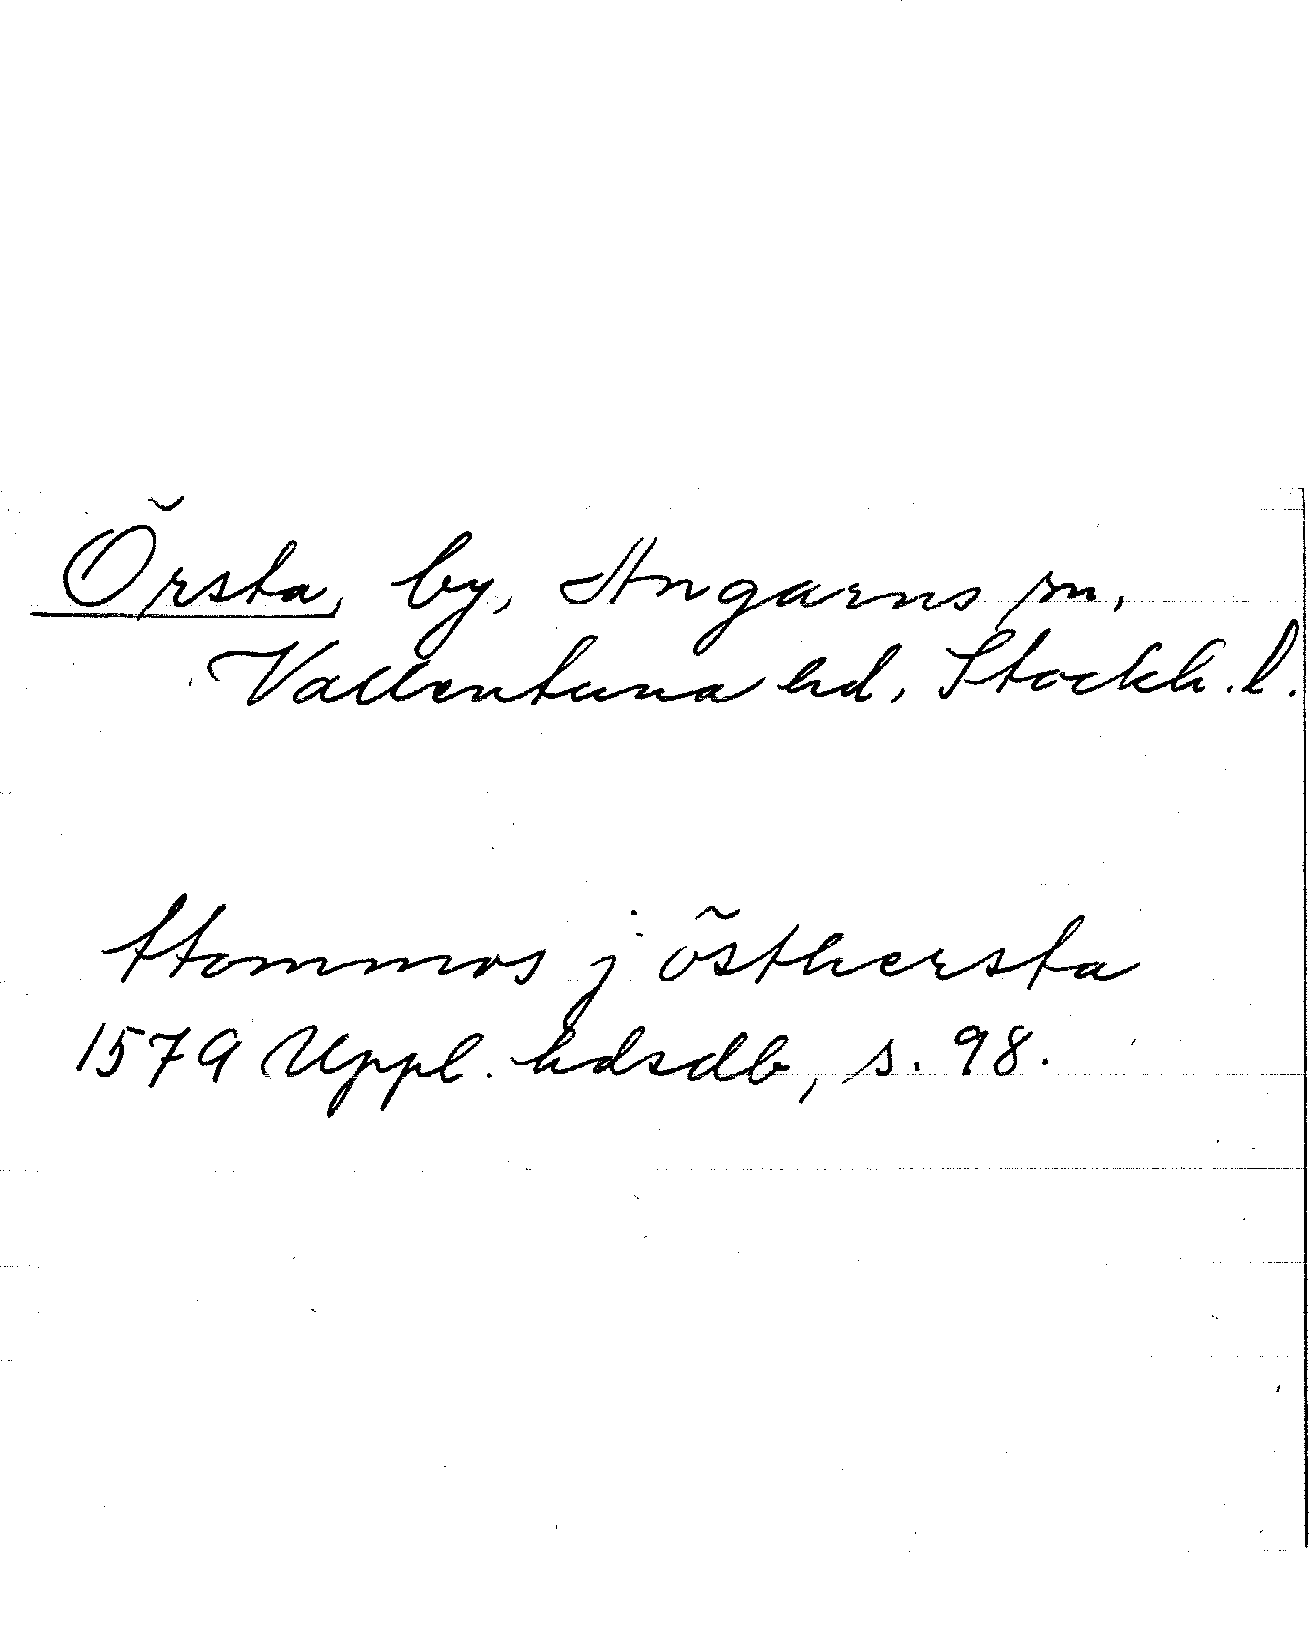 Örsta, by, Angarns sn,
Vallentuna hd, Stockh. l.
ttommos j östhersta
1579 Uppl. hdsdb, s. 98.